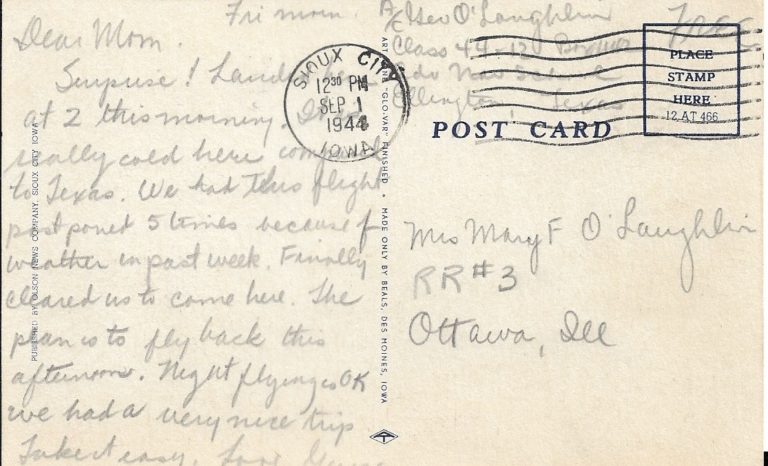 Fri morn.
Dear Mom.
Surprise! Landed
at 2 this morning. It's
really cold here compared
to Texas. We had this flight
postponed 5 times because of
weather in past week. Finally
cleared us to come here. The
plan is to fly back this
afternoon. Night flying is OK
we had a very nice trip
Take it easy, Love
PUBLISHED BY OLSON NEWS COMPANY, SIOUX CITY, IOWA
ART "GLO-VAR" FINISHED • MADE ONLY BY BEALS, DES MOINES, IOWA
SIOUX CITY
12 30 PM
SEP 1
1944
IOWA
A/C Geo O'Laughlin
Class 44-12
Nav School
Ellington, Texas
Free
PLACE
STAMP
HERE
12,AT 466
POST CARD
Mrs Mary F O'Laughlin
RR #3
Ottawa, Ill